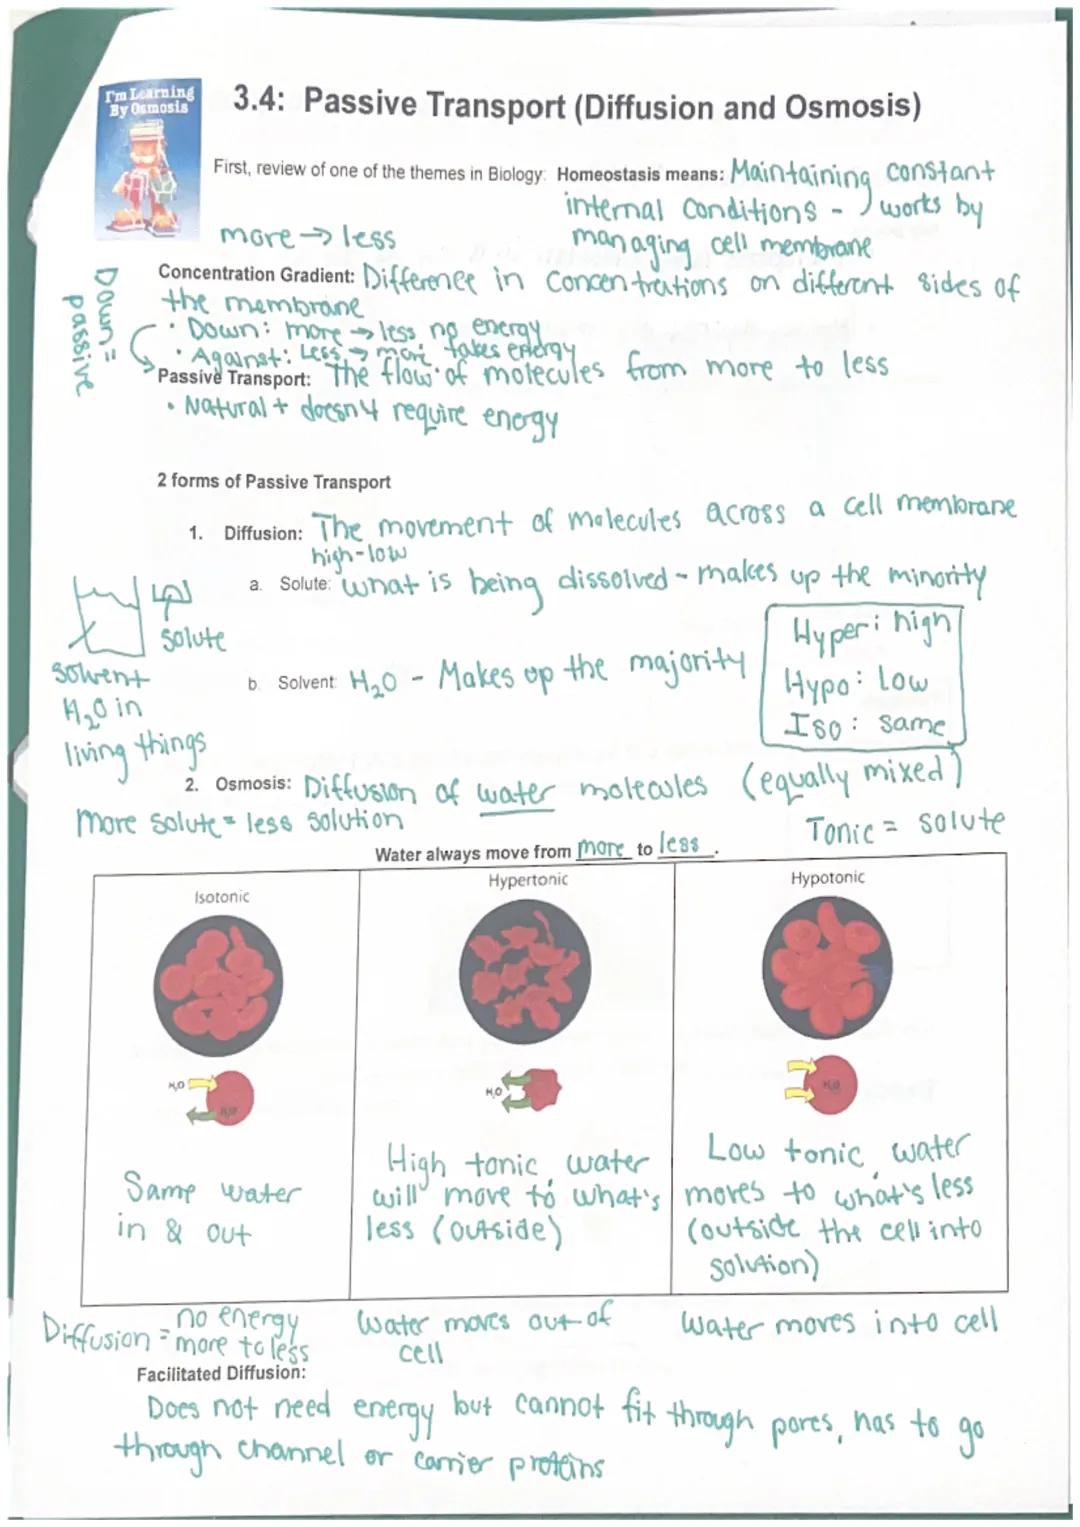 I'm Learning
By Osmosis
3.4: Passive Transport (Diffusion and Osmosis)
First, review of one of the themes in Biology: Homeostasis means: Maintaining constant
internal conditions - works by
managing cell membrane
more → less
Concentration Gradient: Difference in concentrations on different sides of
the membrane
• Down: more → less no energy
• Against: Less → more takes energy
Down =
passive
Passive Transport: The flow of molecules from more to less
• Natural + doesn't require energy
2 forms of Passive Transport
1. Diffusion: The movement of molecules across a cell membrane
high-low
a. Solute: what is being dissolved - makes up the minority
solute
solvent
H₂O in
living things
b. Solvent: H₂O - Makes up the majority
Hyper: high
Hypo: Low
Iso: same
(equally mixed)
2. Osmosis: Diffusion of water molecules
more solute = less solution
Tonic = solute
Water always move from more to less.
Isotonic
Hypertonic
Hypotonic
H₂O
H₂O
H₂O
H₂O
Same water
in & out
High tonic, water
will move to what's
less (outside)
Low tonic, water
moves to what's less
(outside the cell into
solution)
Diffusion = no energy
more to less
Water moves out of
cell
Water moves into cell
Facilitated Diffusion:
Does not need energy but cannot fit through pores, has to go
through channel or carrier proteins